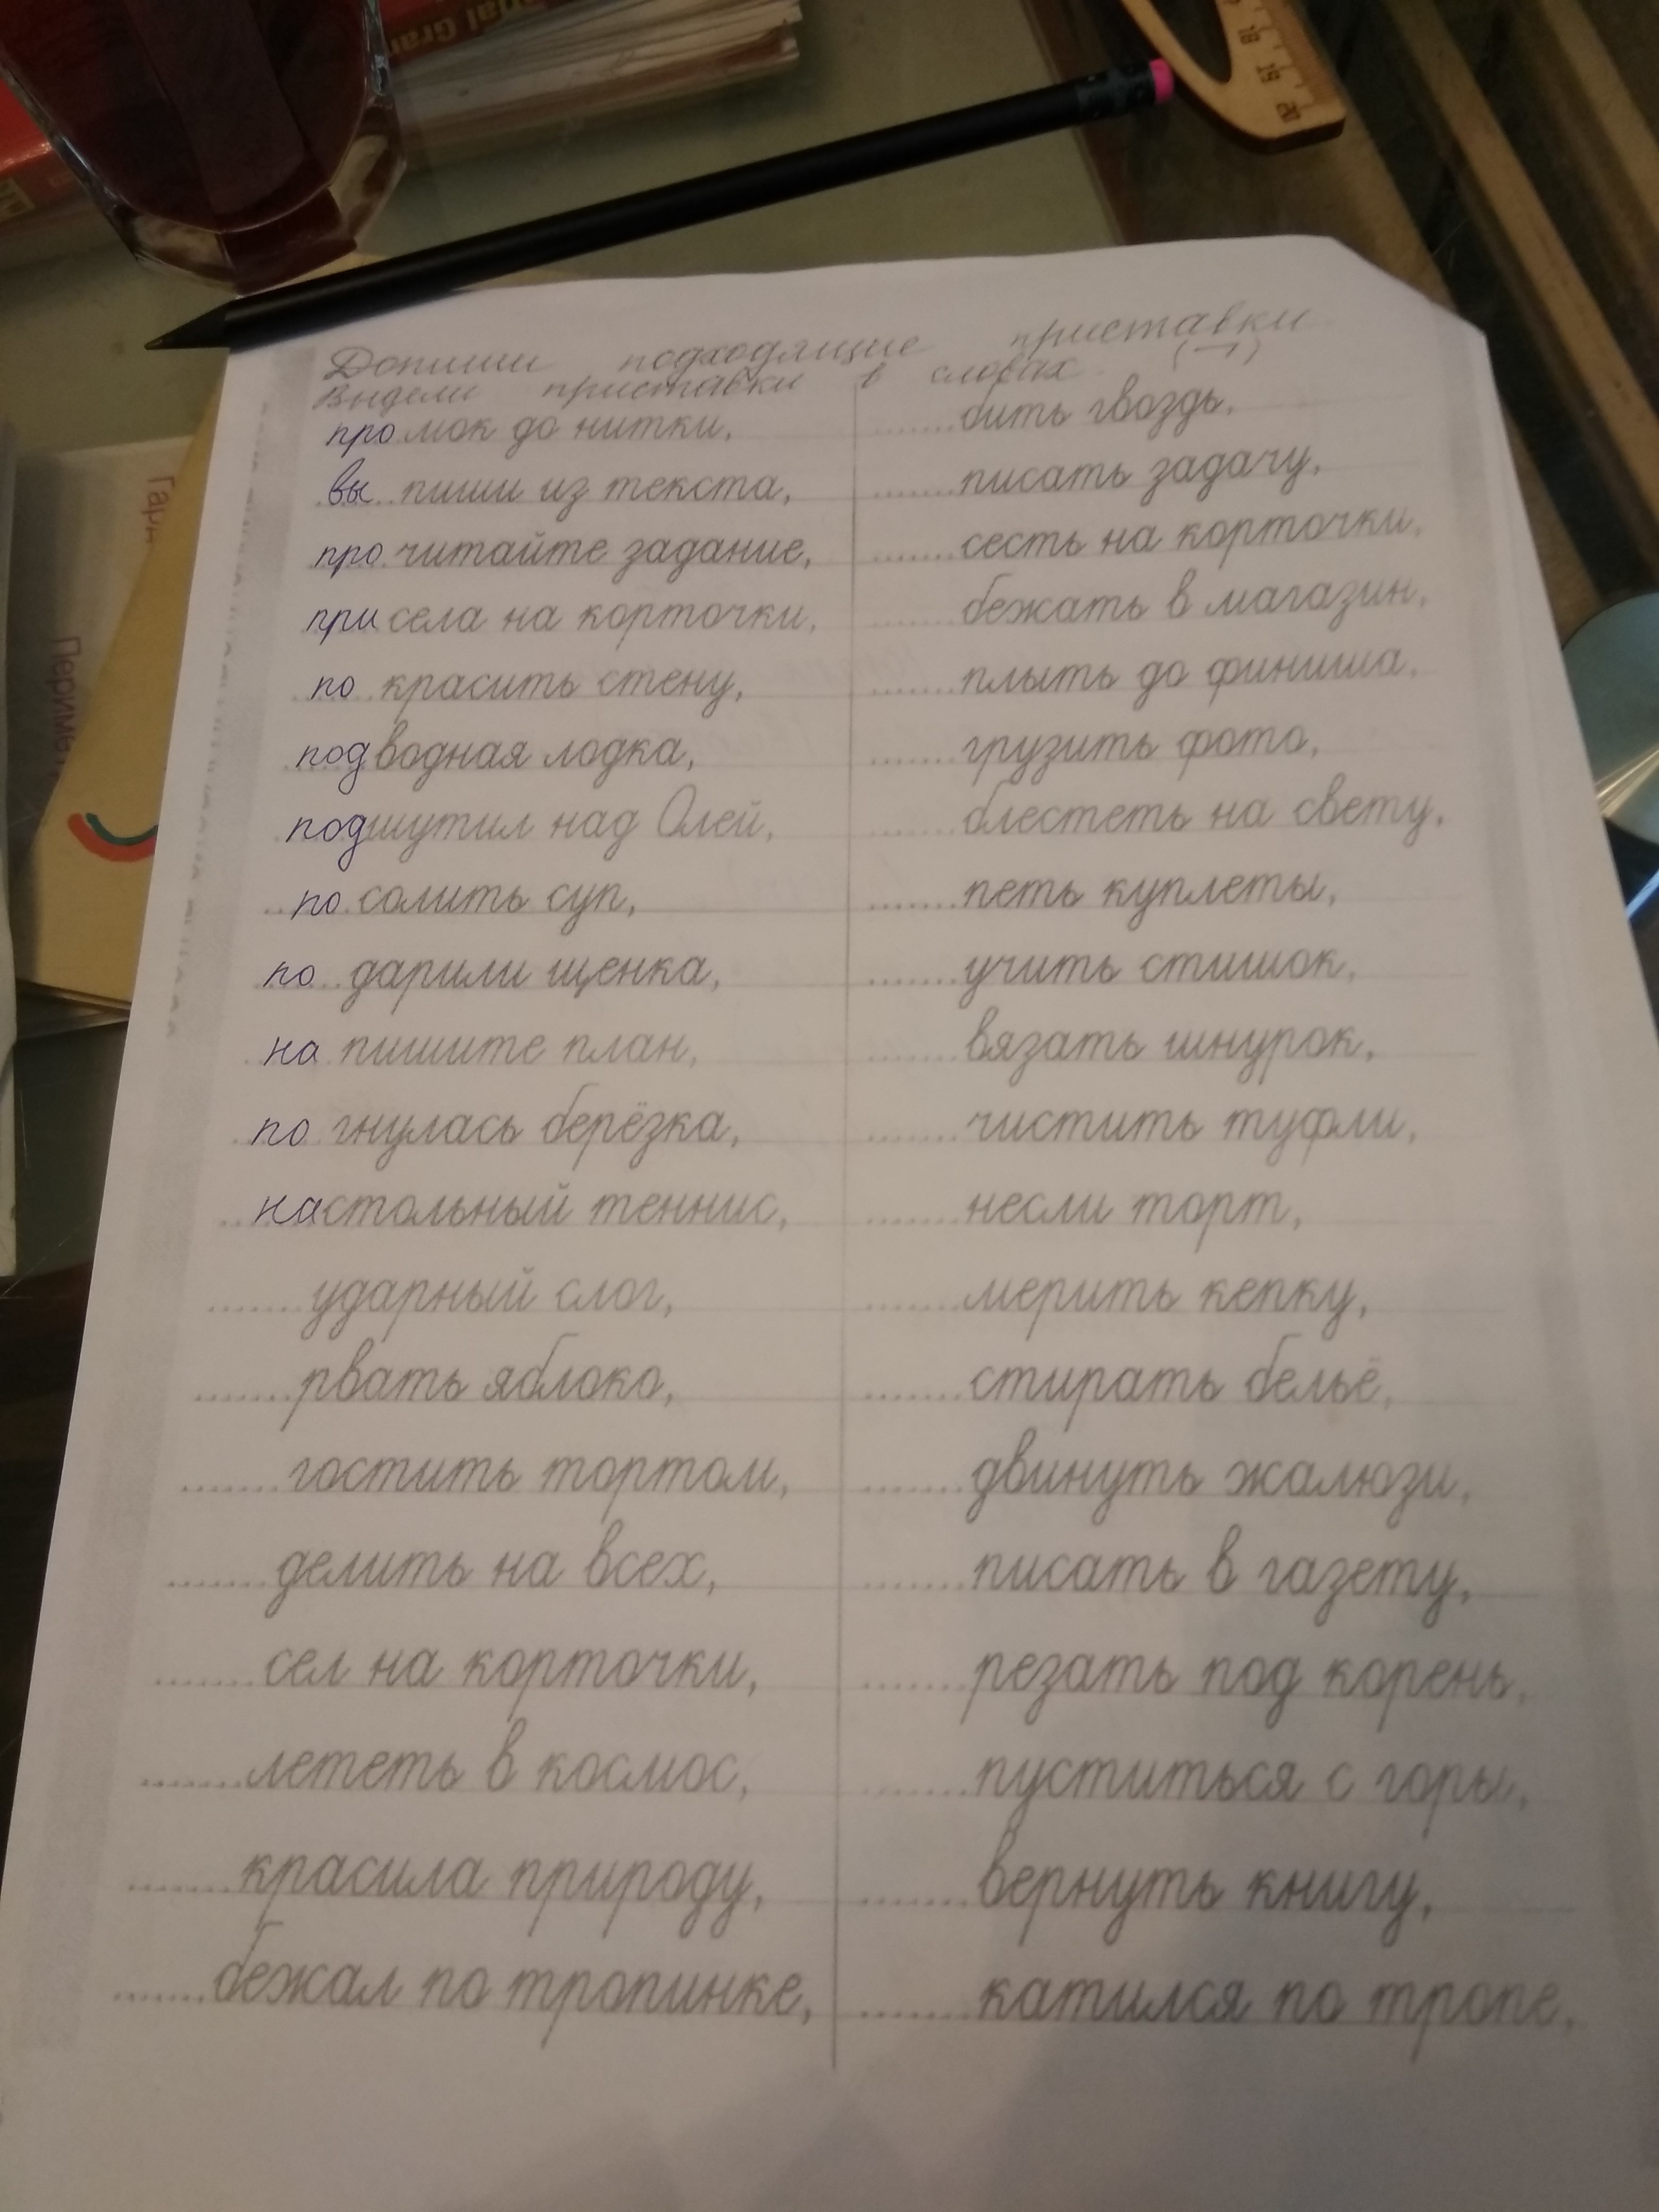 nal Gran
18
19
20
Гари
Периме
Допиши подходящие приставки
Выдели приставки в словах. (¬)
промок до нитки,
вы...пиши из текста,
про.читайте задание,
присела на корточки,
..по..красить стену,
подводная лодка,
подшутил над Олей,
..по.солить суп,
по...дарили щенка,
.на пишите план,
.по..гнулась берёзка,
..настольный теннис,
.......ударный слог,
.......рвать яблоко,
.......гостить тортом,
.......делить на всех,
.......сел на корточки,
.......лететь в космос,
.......красила природу,
.......бежал по тропинке,
.......бить гвоздь,
.......писать задачу,
.......сесть на корточки,
.......бежать в магазин,
.......плыть до финиша,
.......грузить фото,
.......блестеть на свету,
.......петь куплеты,
.......учить стишок,
.......вязать шнурок,
.......чистить туфли,
.......несли торт,
.......мерить кепку,
.......стирать бельё,
.......двинуть жалюзи,
.......писать в газету,
.......резать под корень,
.......пуститься с горы,
.......вернуть книгу,
.......катился по тропе,